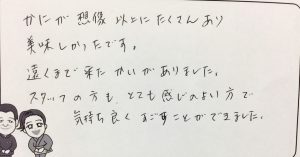 かにが想像以上にたくさんあり
美味しかったです。
遠くまで来たかいがありました。
スタッフの方も、とても感じのよい方で
気持ち良くすごすことができました。